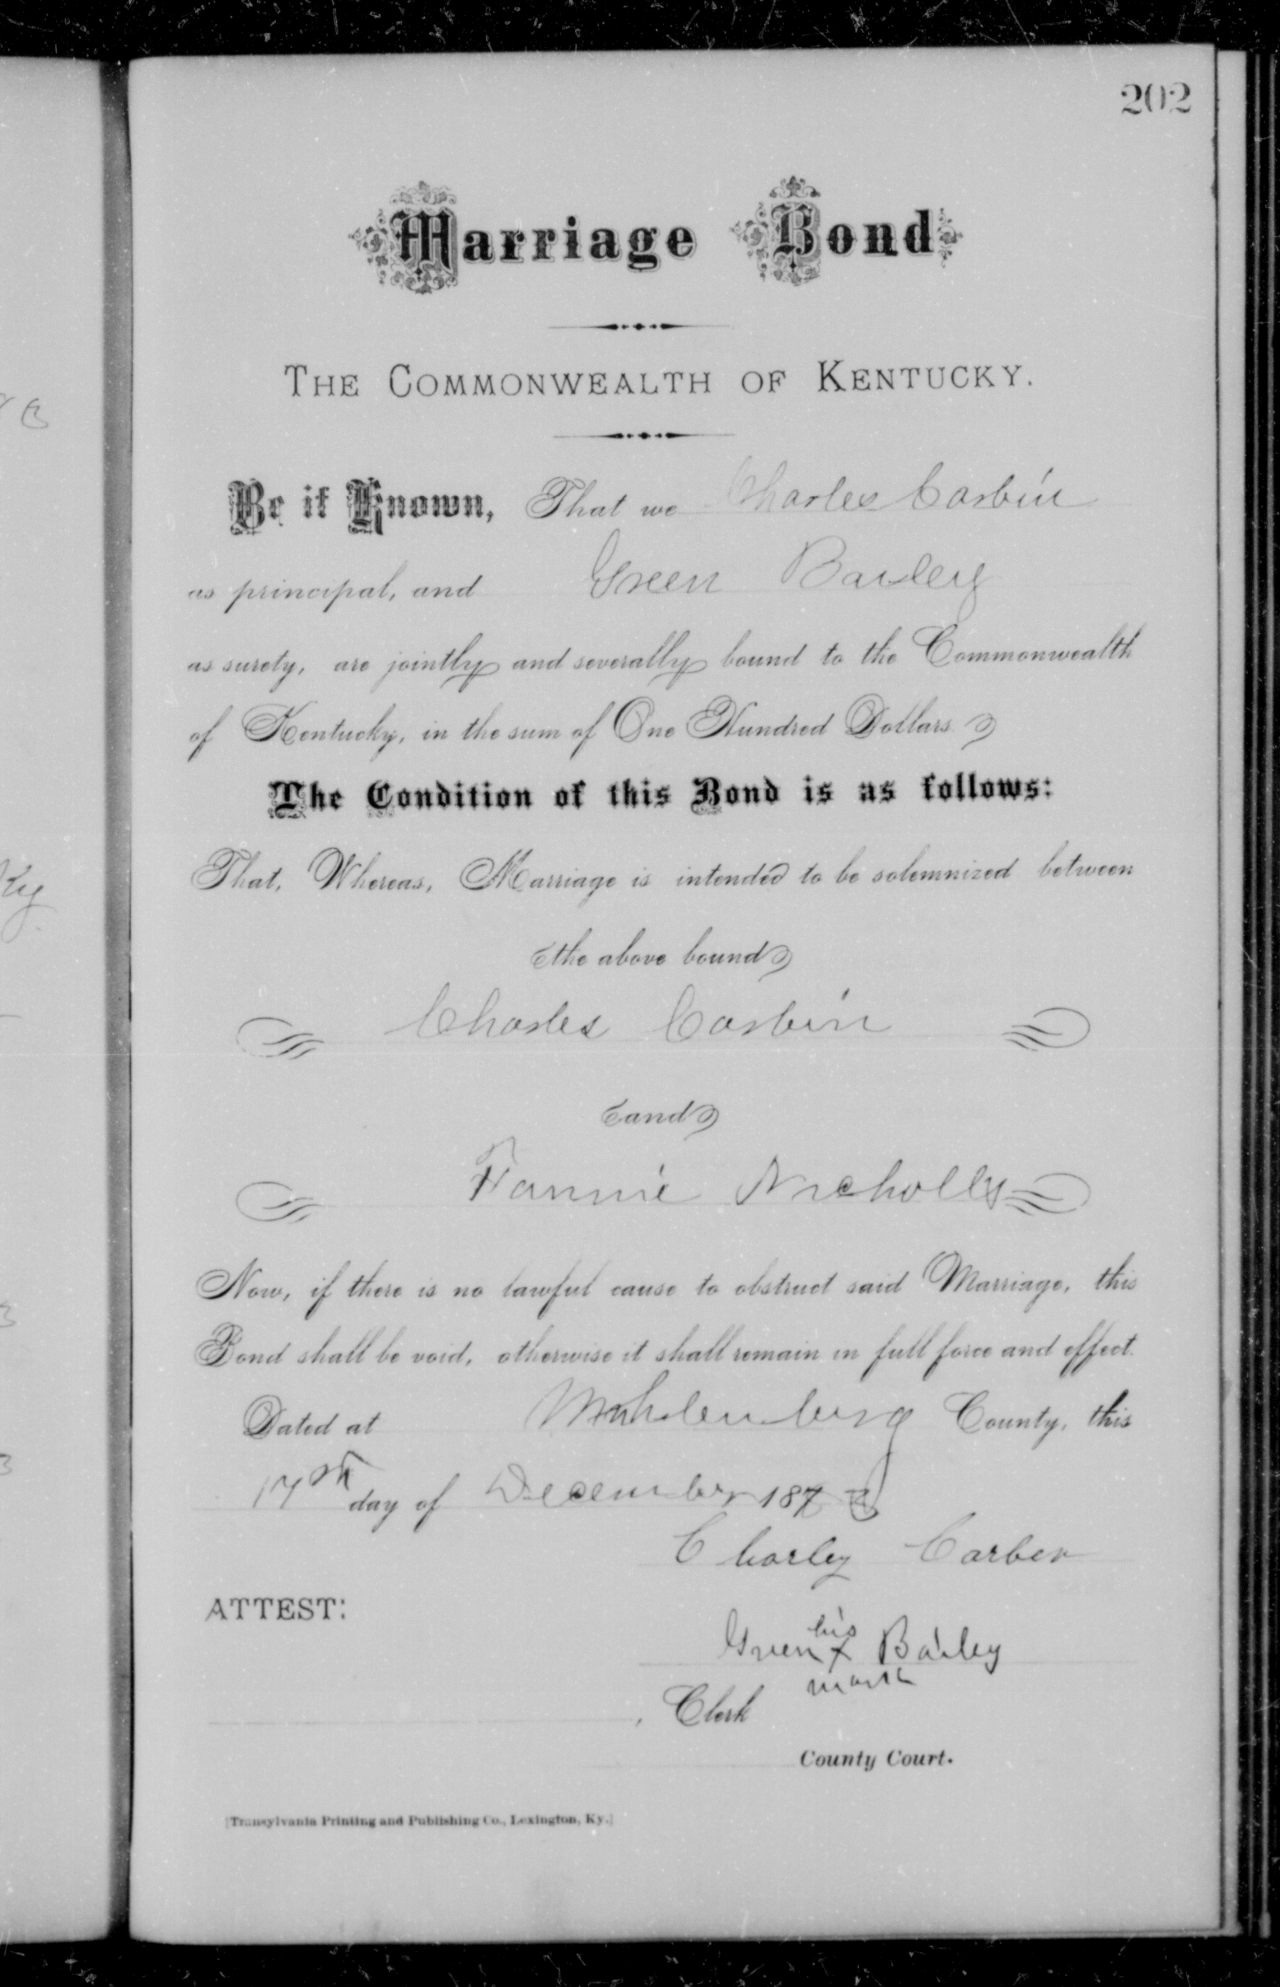 202
Marriage Bond
THE COMMONWEALTH OF KENTUCKY.
Be it Known, That we Charles Corbin
as principal, and Green Bailey
as surety, are jointly and severally bound to the Commonwealth
of Kentucky, in the sum of One Hundred Dollars.
The Condition of this Bond is as follows:
That, Whereas, Marriage is intended to be solemnized between
the above bound
Charles Corbin
and
Fannie Nicholls
Now, if there is no lawful cause to obstruct said Marriage, this
Bond shall be void, otherwise it shall remain in full force and effect.
Dated at Muhlenberg County, this
17th day of December 187
Charley Corben
ATTEST:
his
Green X Bailey
mark
, Clerk
County Court.
[Transylvania Printing and Publishing Co., Lexington, Ky.]